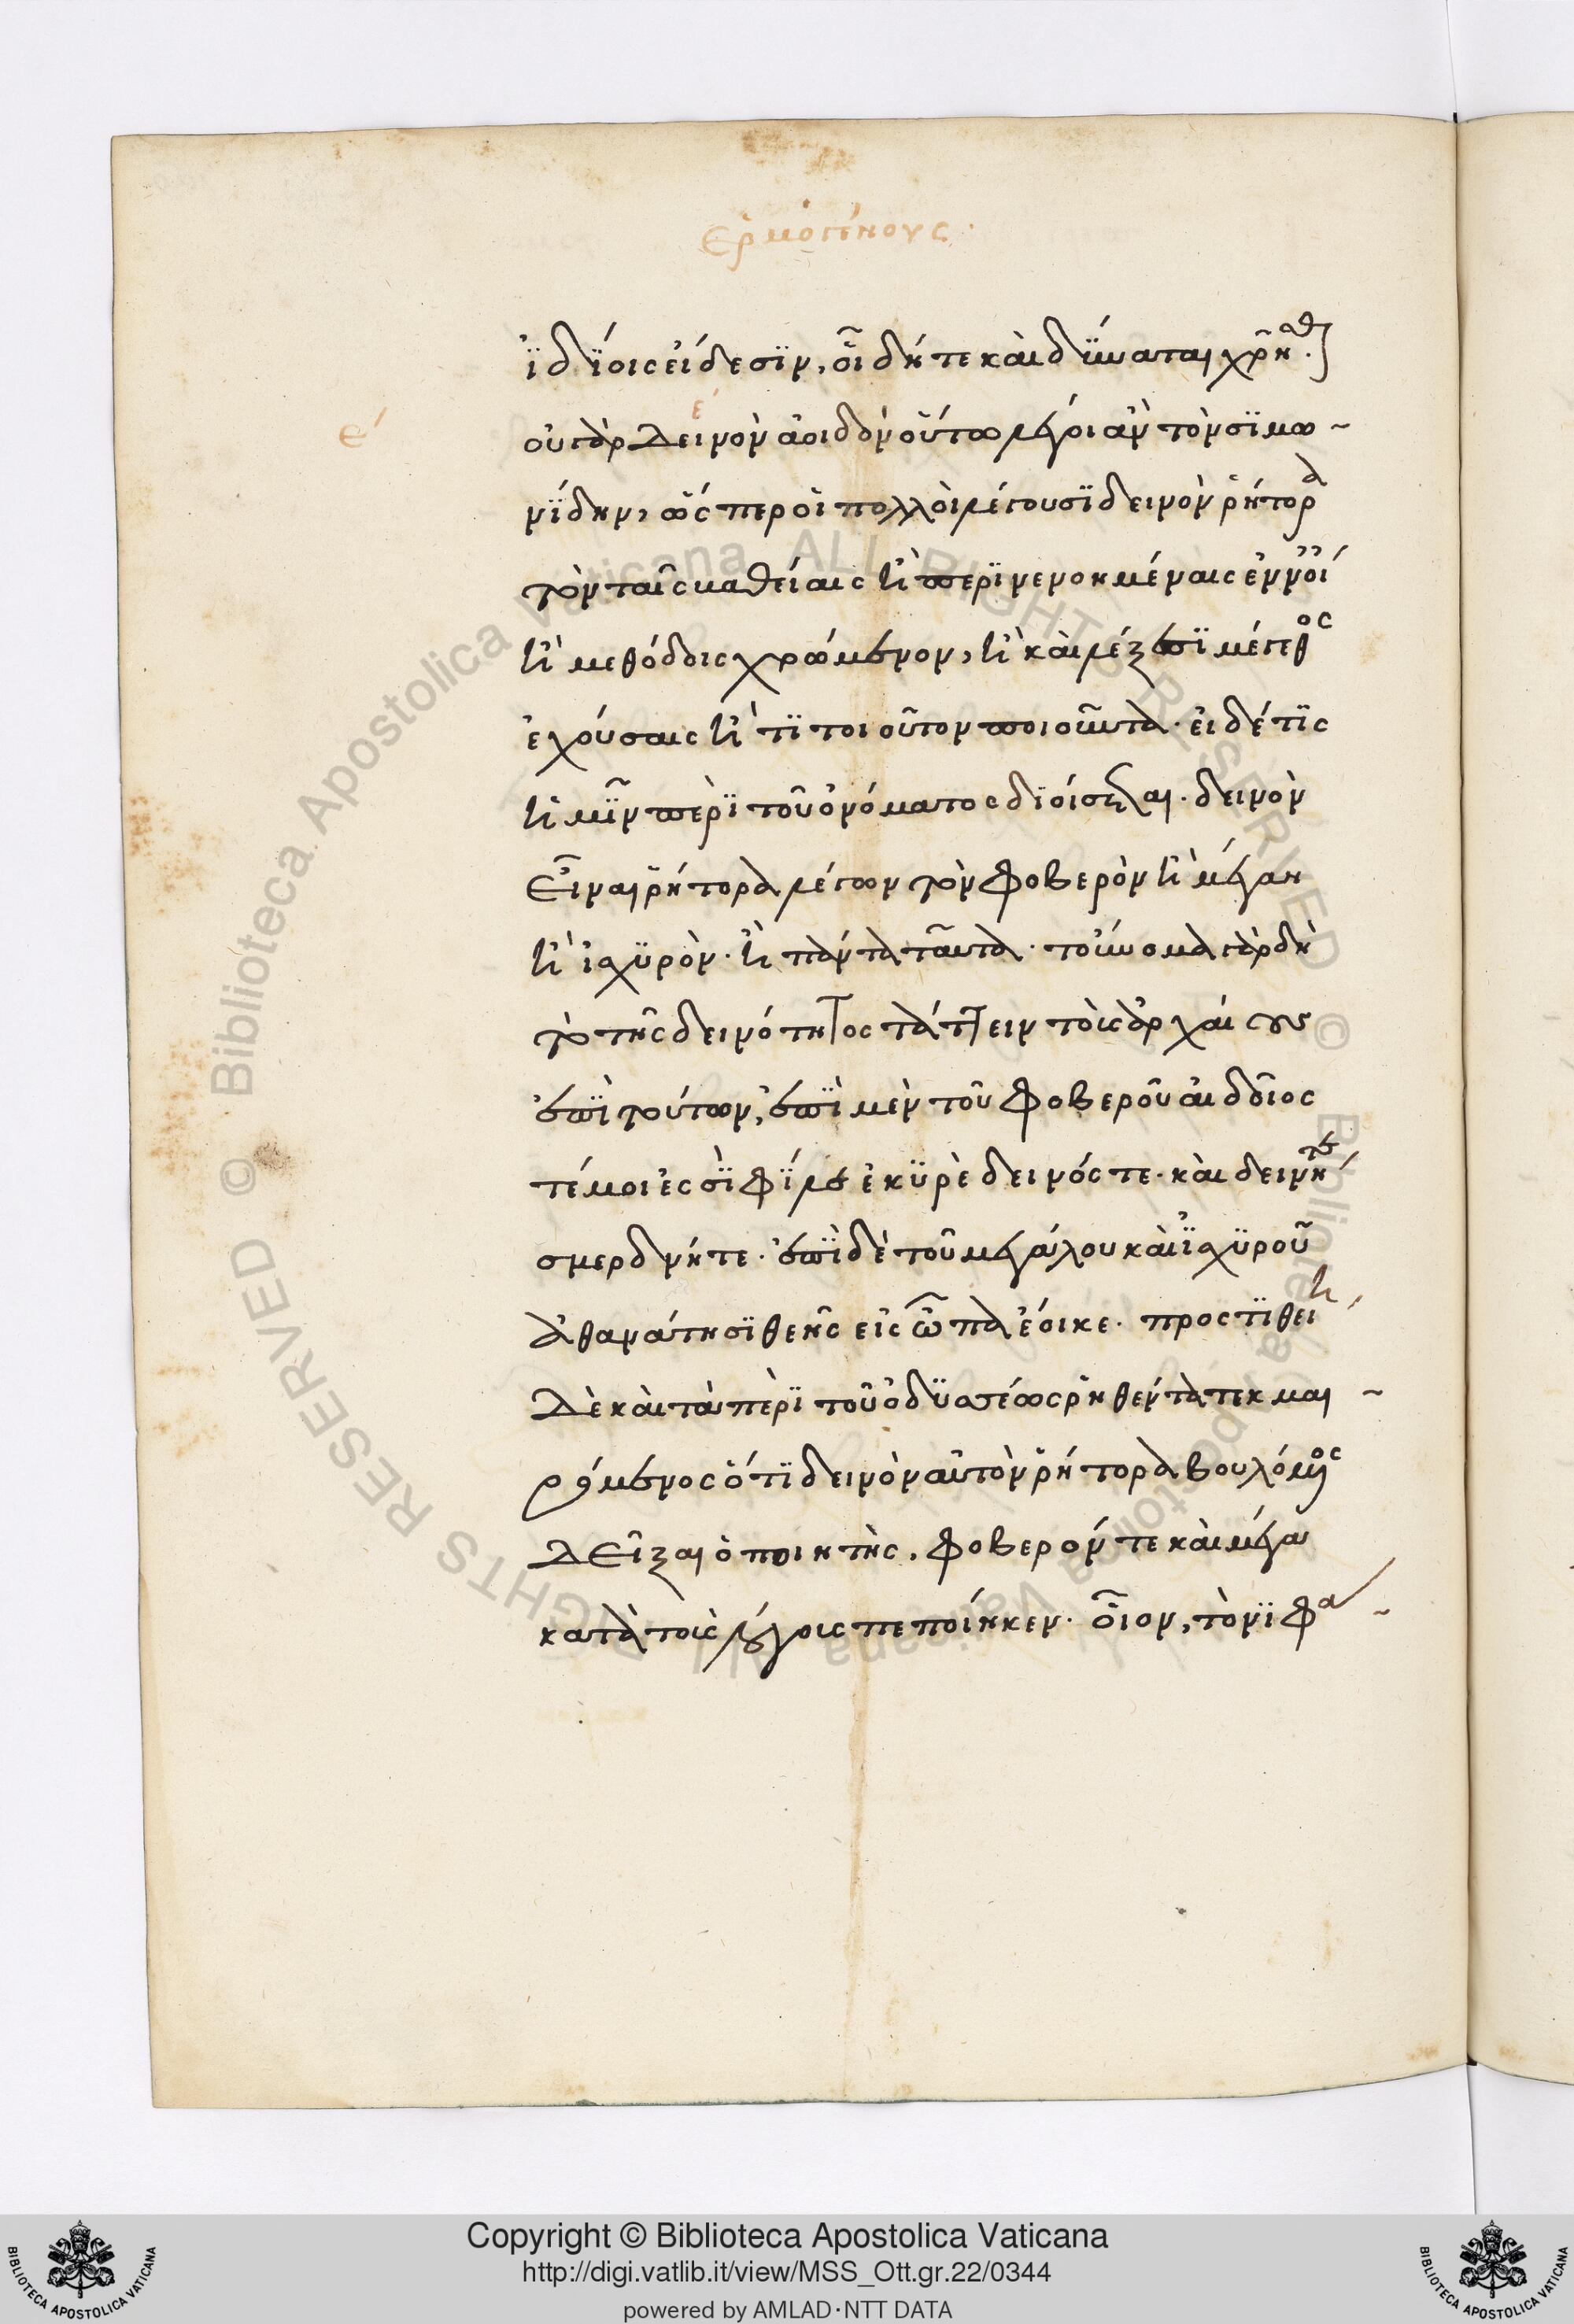 Ἑρμογένους.
ἰδίοις εἴδεσιν, οἷς δή τε καὶ δύναται χρῆσθαι.
ε΄
οὐ γὰρ δεινὸν ἀοιδὸν οὕτω λέγοι ἂν τὸν σιμω-
νίδην, ὥσπερ οἱ πολλοὶ λέγουσι δεινὸν ῥήτορα
τὸν ταῖς βαθείαις καὶ περινενοημέναις ἐννοίαις
καὶ μεθόδοις χρώμενον, καὶ καὶ λέξεσι μέγεθος
ἐχούσαις καὶ τι τοιοῦτον ποιοῦντα. εἰ δέ τις
ἡμῖν περὶ τοῦ ὀνόματος διοίσεται. δεινὸν
εἶναι ῥήτορα λέγων τὸν φοβερὸν καὶ μέγαν
καὶ ἰσχυρὸν. καὶ πάντα ταῦτα. τοὔνομα γὰρ δὴ
τὸ τῆς δεινότητος τάττειν τοὺς ἀρχαίους
ἐπὶ τούτων, ἐπὶ μὲν τοῦ φοβεροῦ αἰδοῖος
τέ μοι ἐσσὶ φίλε ἑκυρὲ δεινός τε. καὶ δεινή τε
σμερδνή τε. ἐπὶ δὲ τοῦ μεγάλου καὶ ἰσχυροῦ
ἀθανάτησι θεῇς εἰς ὦπα ἔοικε. προστιθεὶς
δὲ καὶ τὰ περὶ τοῦ ὀδυσσέως ῥηθέντα τεκμαι-
ρόμενος ὅτι δεινὸν αὐτὸν ῥήτορα βουλόμενος
δεῖξαι ὁ ποιητὴς, φοβερόν τε καὶ μέγαν
κατὰ τοὺς λόγους πεποίηκεν. οἷον, τὸν ἰφα-
Copyright © Biblioteca Apostolica Vaticana
http://digi.vatlib.it/view/MSS_Ott.gr.22/0344
powered by AMLAD·NTT DATA
BIBLIOTECA APOSTOLICA VATICANA
BIBLIOTECA APOSTOLICA VATICANA
© Biblioteca Apostolica Vaticana ALL RIGHTS RESERVED
© Biblioteca Apostolica Vaticana ALL RIGHTS RESERVED